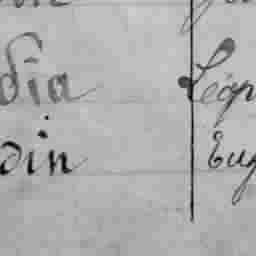 dia Léop
din Eug